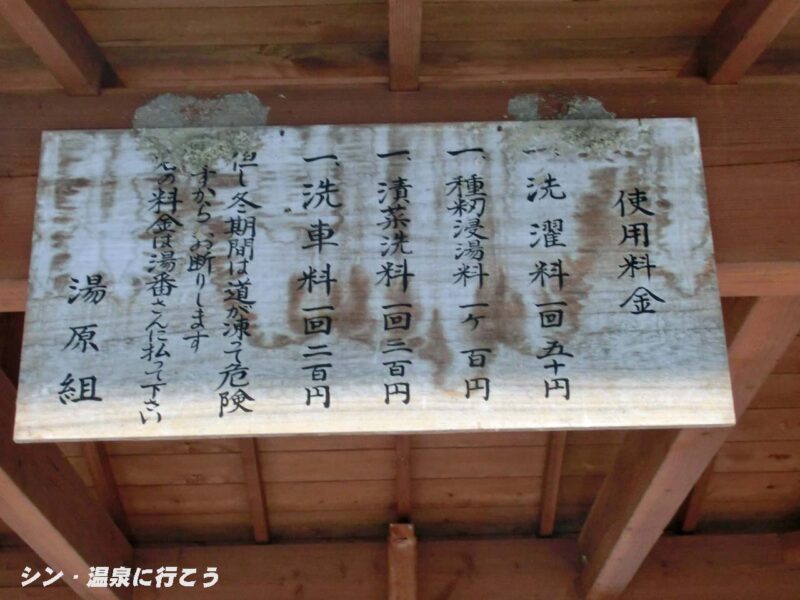 使用料金
一、洗濯料一回五十円
一、種籾浸湯料一ヶ百円
一、漬菜洗料一回二百円
一、洗車料一回二百円
但し冬期間は道が凍って危険
すからお断りします
料金は湯番さんに払って下さい
湯原組
シン・温泉に行こう